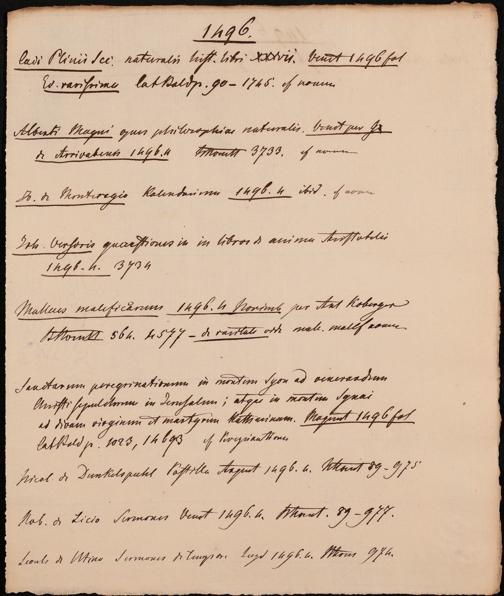 1496.
Caii Plinii Sec. naturalis hist. libri XXXVII. Venet 1496 fol
Ed. rarissima Cat Bald p. 90 - 1745. cf
Alberti Magni opus philosophiae naturalis. Venet per Ge
de Arrivabenis 1496. 4 3733. cf
Jo. de Monteregio Kalendarium 1496. 4 ibid. cf
Joh. Versoris quaestiones in libros de anima Aristotelis
1496. 4. 3734
Malleus maleficarum 1496. 4 Norimb per Ant Koberger
564. 4577 - de raritate
Sanctarum peregrinationum in montem Syon ad venerandum
Christi sepulchrum in Jerusalem; atque in montem Synai
ad divam virginem et martyrem Katharinam. Mogunt 1496 fol
Cat Bald p. 1023, 14693 cf
Nicol de Dunkelspuhl Postilla 1496. 4. 89-975
Rob. de Licio Sermones Venet 1496. 4. 89-977.
Leonh de Utino Sermones de tempore Lugd 1496. 4. 974.